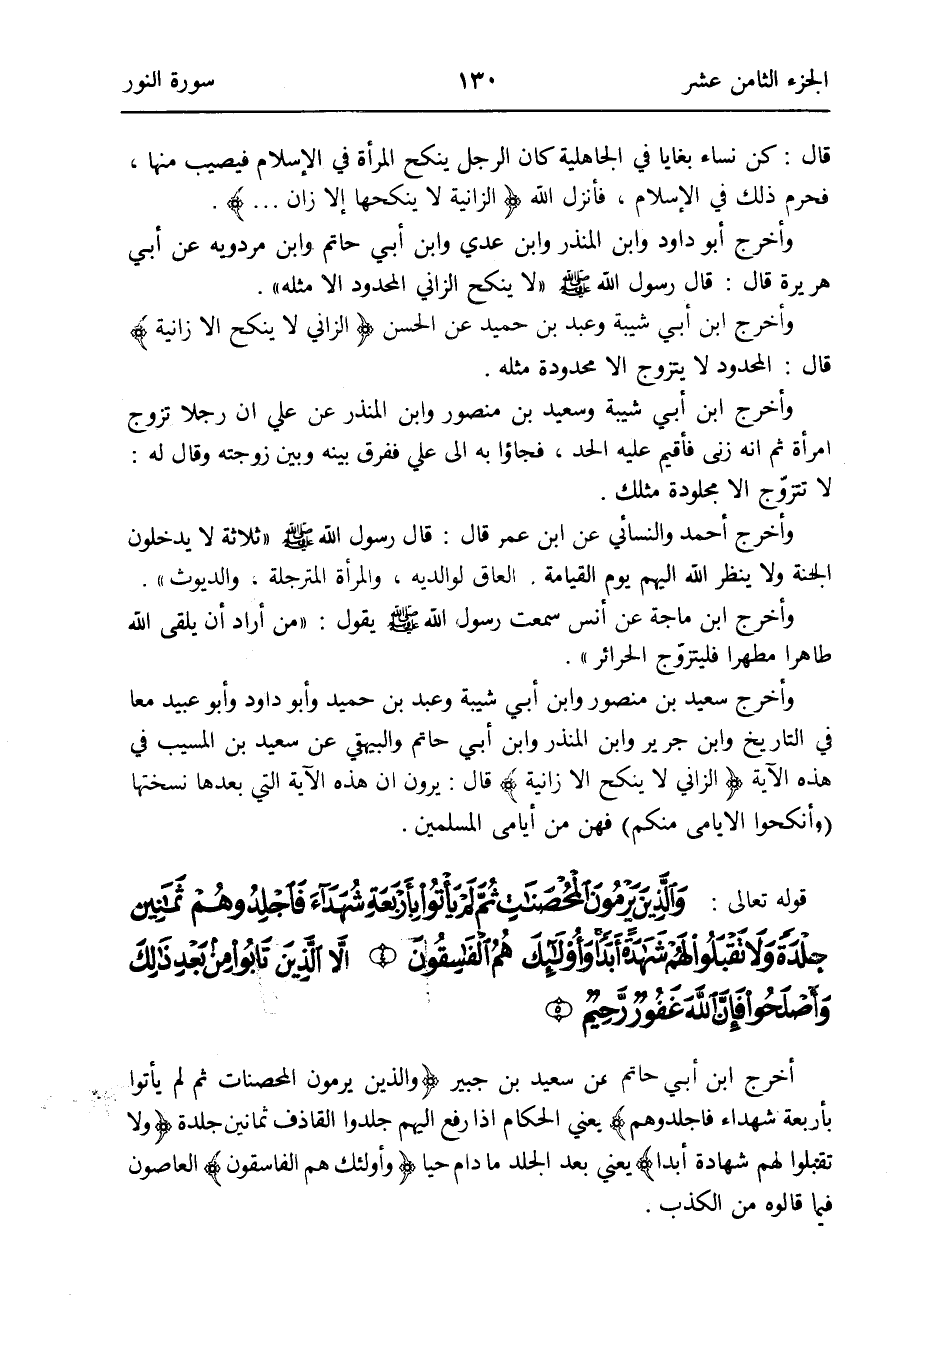 الجزء الثامن عشر ١٣٠ سورة النور
قال : كن نساء بغايا في الجاهلية كان الرجل ينكح المرأة في الإسلام فيصيب منها ،
فحرم ذلك في الإسلام ، فأنزل الله ﴿ الزانية لا ينكحها إلا زان ... ﴾ .
وأخرج أبو داود وابن المنذر وابن عدي وابن أبي حاتم وابن مردويه عن أبي
هريرة قال : قال رسول الله ﷺ «لا ينكح الزاني المحدود الا مثله» .
وأخرج ابن أبي شيبة وعبد بن حميد عن الحسن ﴿ الزاني لا ينكح الا زانية ﴾
قال : المحدود لا يتزوج الا محدودة مثله .
وأخرج ابن أبي شيبة وسعيد بن منصور وابن المنذر عن علي ان رجلا تزوج
امرأة ثم انه زنى فأقيم عليه الحد ، فجاؤا به الى علي ففرق بينه وبين زوجته وقال له :
لا تتزوّج الا مجلودة مثلك .
وأخرج أحمد والنسائي عن ابن عمر قال : قال رسول الله ﷺ «ثلاثة لا يدخلون
الجنة ولا ينظر الله اليهم يوم القيامة . العاق لوالديه ، والمرأة المترجلة ، والديوث» .
وأخرج ابن ماجة عن أنس سمعت رسول الله ﷺ يقول : «من أراد أن يلقى الله
طاهرا مطهرا فليتزوّج الحرائر » .
وأخرج سعيد بن منصور وابن أبي شيبة وعبد بن حميد وأبو داود وأبو عبيد معا
في التاريخ وابن جرير وابن المنذر وابن أبي حاتم والبيهقي عن سعيد بن المسيب في
هذه الآية ﴿ الزاني لا ينكح الا زانية ﴾ قال : يرون ان هذه الآية التي بعدها نسختها
(وأنكحوا الايامى منكم) فهن من أيامى المسلمين .
قوله تعالى : وَالَّذِينَ يَرْمُونَ الْمُحْصَنَاتِ ثُمَّ لَمْ يَأْتُوا بِأَرْبَعَةِ شُهَدَاءَ فَاجْلِدُوهُمْ ثَمَانِينَ
جَلْدَةً وَلَا تَقْبَلُوا لَهُمْ شَهَادَةً أَبَدًا وَأُولَٰئِكَ هُمُ الْفَاسِقُونَ ﴿٤﴾ الَّا الَّذِينَ تَابُوا مِنْ بَعْدِ ذَٰلِكَ
وَأَصْلَحُوا فَإِنَّ اللَّهَ غَفُورٌ رَّحِيمٌ ﴿٥﴾
أخرج ابن أبي حاتم عن سعيد بن جبير ﴿والذين يرمون المحصنات ثم لم يأتوا
بأربعة شهداء فاجلدوهم﴾ يعني الحكام اذا رفع اليهم جلدوا القاذف ثمانين جلدة ﴿ولا
تقبلوا لهم شهادة أبدا﴾ يعني بعد الجلد ما دام حيا ﴿وأولئك هم الفاسقون﴾ العاصون
فيما قالوه من الكذب .